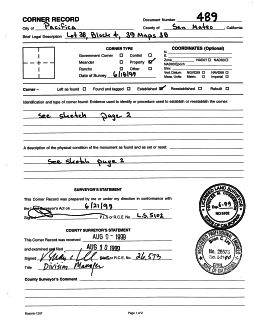 CORNER RECORD Document Number 489
City of Pacifica County of San Mateo, California
Brief Legal Description Lot 38, Block 4, 39 Maps 38
CORNER TYPE
COORDINATES (Optional)
Government Corner Control
Meander Property
Rancho Other
Date of Survey 6/18/99
Corner – Left as found Found and tagged Established Reestablished Rebuilt
Identification and type of corner found: Evidence used to identify or procedure used to establish or reestablish the corner:
See sketch page 2
A description of the physical condition of the monument as found and as set or reset:
See sketch page 2
SURVEYOR'S STATEMENT
This Corner Record was prepared by me or under my direction in conformance with
the Surveyor's Act on 6/21/99
Signed P.L.S or R.C.E. No. L.S. 5102
COUNTY SURVEYOR'S STATEMENT
This Corner Record was received AUG 9 - 1999
and examined and filed AUG 10 1999
Signed P.L.S or R.C.E. No. 26573
Title Division Manager
County Surveyor's Comment
Page 1 of 2